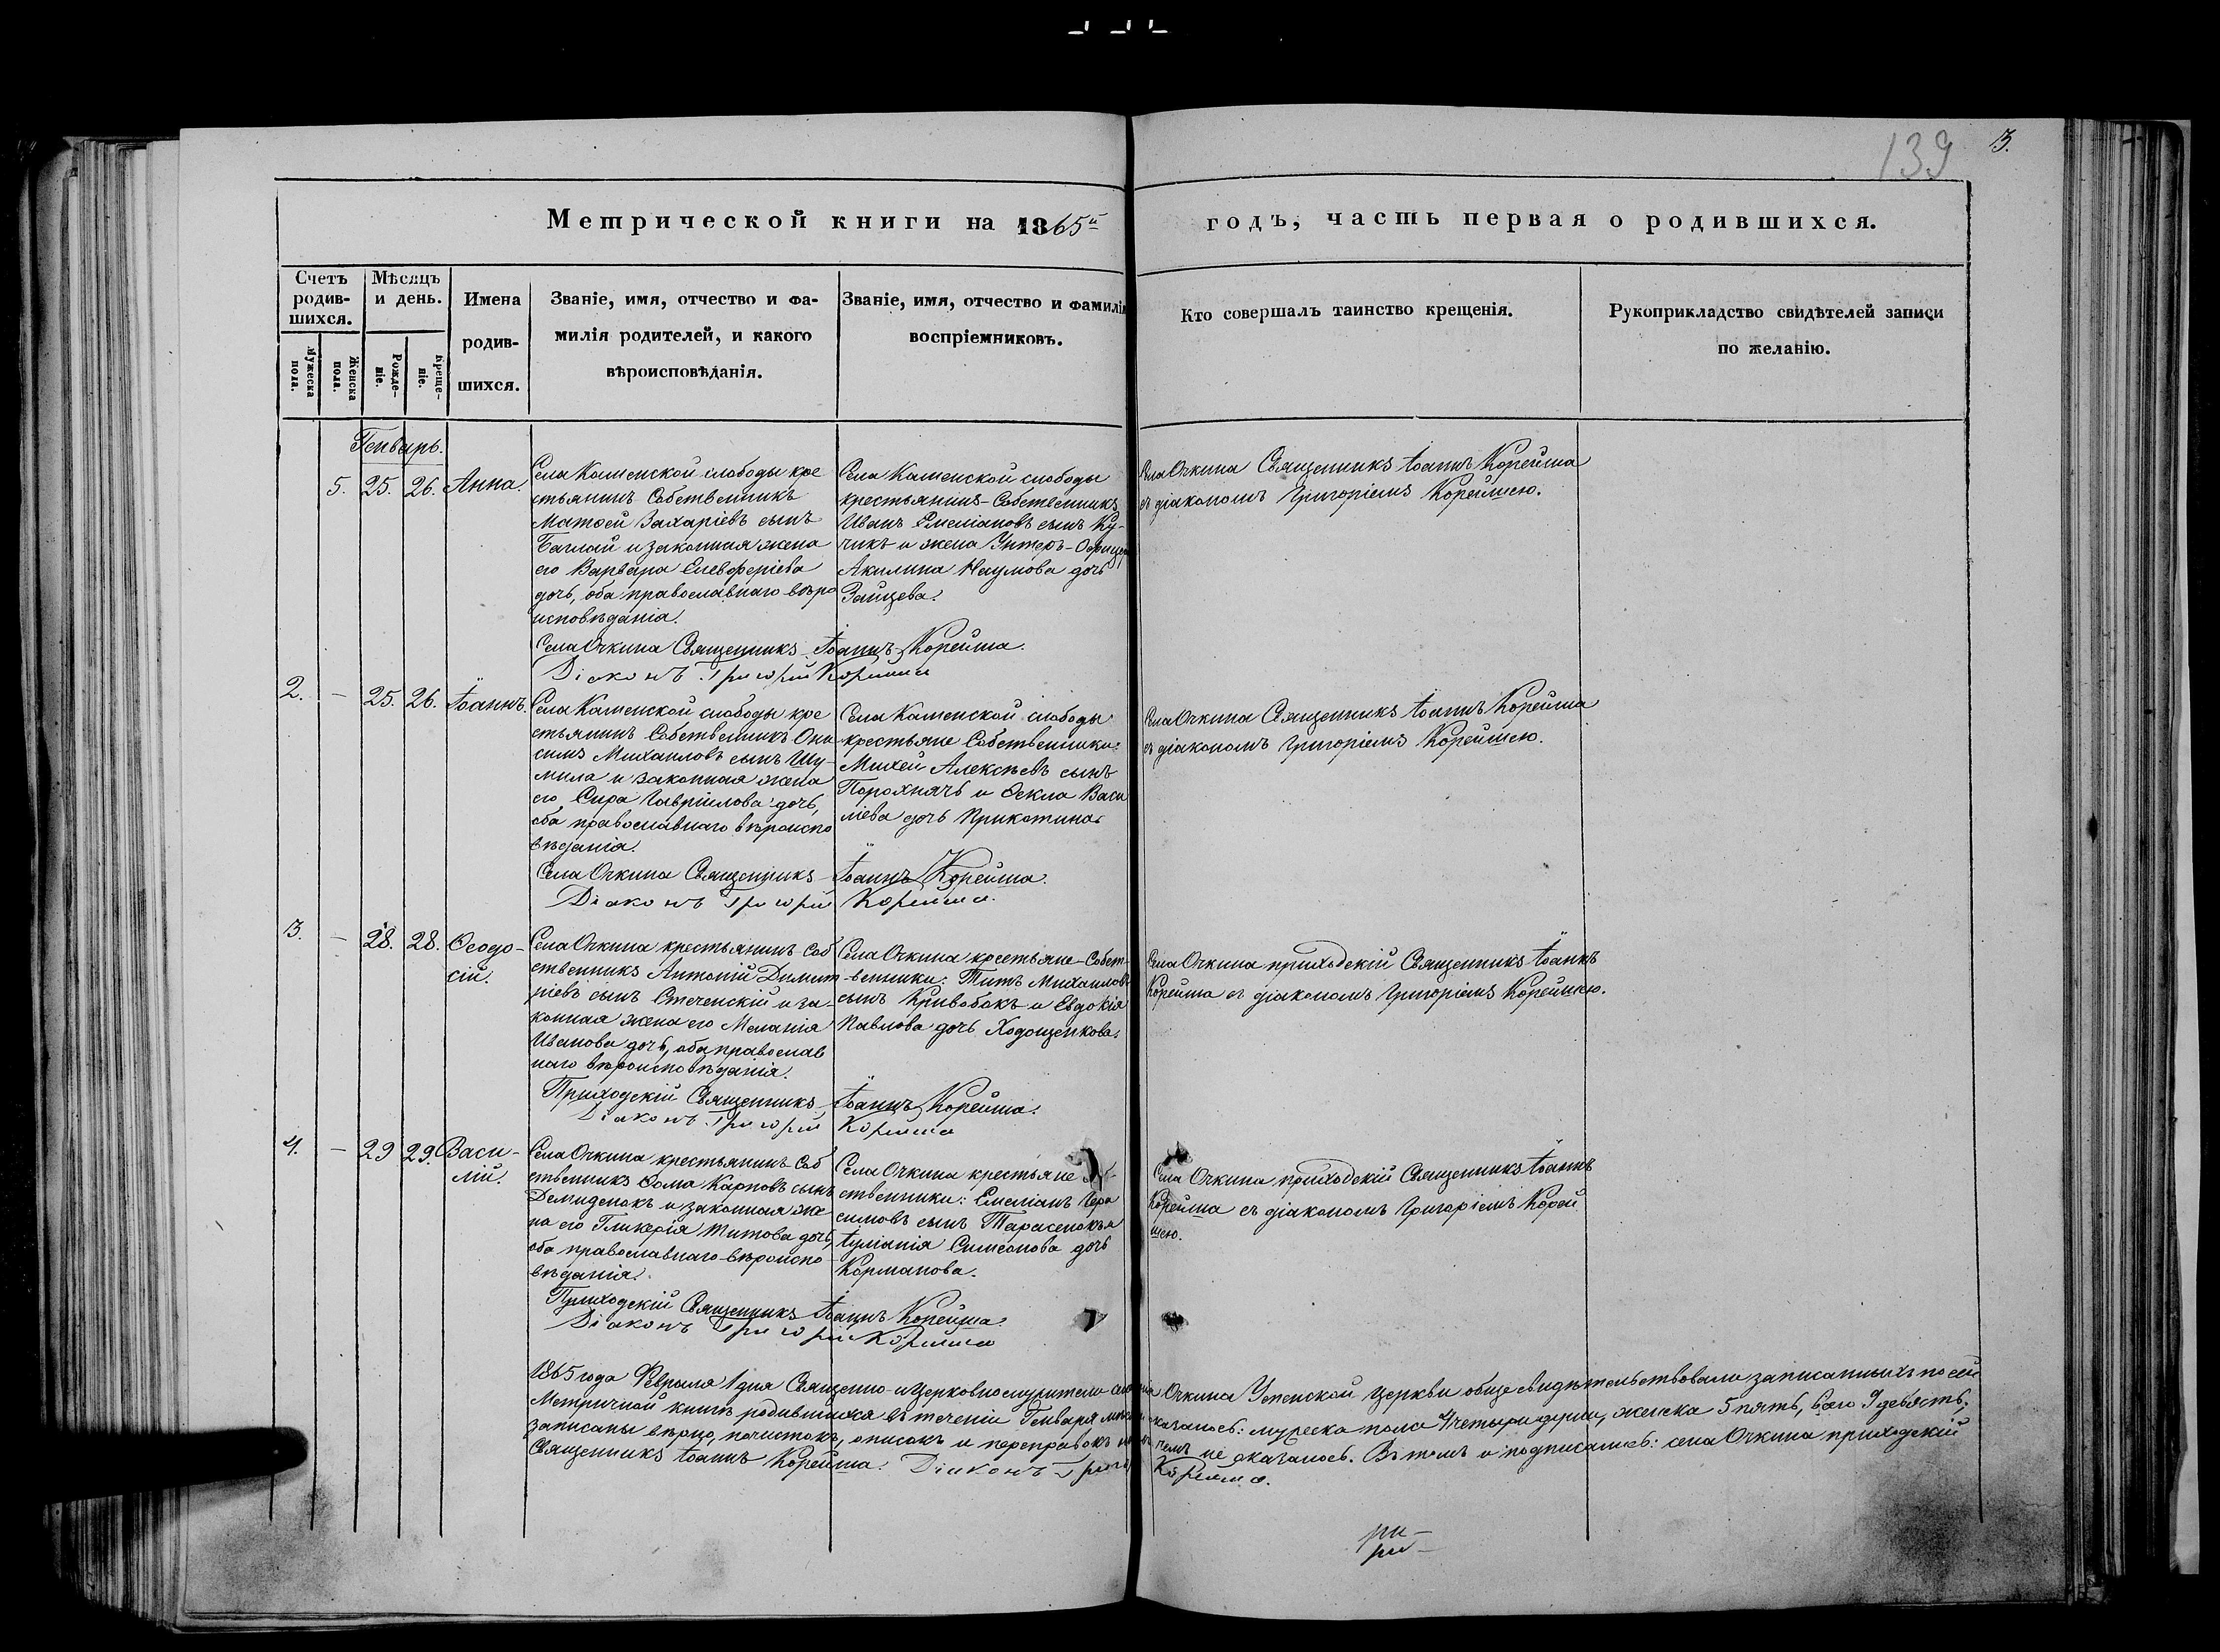 139
3.
Метрической книги на 1865й
годъ, часть первая о родившихся.
Счетъ родив-шихся.
Мѣсяцъ и день.
Имена родив-шихся.
Званіе, имя, отчество и фа-
милія родителей, и какого
вѣроисповѣданія.
Званіе, имя, отчество и фамилія
воспріемниковъ.
Кто совершалъ таинство крещенія.
Рукоприкладство свидѣтелей записи
по желанію.
Мужеска пола.
Женска пола.
Рожде-ніе.
Креще-ніе.
Генварь.
5. 25. 26. Анна.
Села Каменской слободы кре
стьянинъ Собственникъ
Матѳей Захаріевъ сынъ
Баглай и законная жена
его Варвара Елевферіева
дочь, оба православнаго вѣро
исповѣданія.
Села Каменской слободы
крестьянинъ-Собственникъ
Иванъ Емеліановъ сынъ Ку-
чикъ и жена Унтеръ-Офице
Акилина Наумова дочь
Зайцева.
Села Очкина Священникъ Іоаннъ Корейша
съ діакономъ Григоріемъ Корейшею.
Села Очкина Священникъ Іоаннъ Корейша.
Діаконъ Григорій Корейша
2. – 25. 26. Іоаннъ.
Села Каменской слободы кре
стьянинъ Собственникъ Они
симъ Михаиловъ сынъ Шу-
мила и законная жена
его Сира Гавріилова дочь,
оба православнаго вѣроиспо
вѣданія.
Села Каменской слободы
крестьяне Собственники:
Михей Алексѣевъ сынъ
Порохнячъ и Ѳекла Васи
ліева дочь Прикотина.
Села Очкина Священникъ Іоаннъ Корейша
съ діакономъ Григоріемъ Корейшею.
Села Очкина Священникъ Іоаннъ Корейша.
Діаконъ Григорій Корейша.
3. – 28. 28. Ѳеодо-
сій.
Села Очкина крестьянинъ Соб
ственникъ Антоній Димит
ріевъ сынъ Стеченскій и за-
конная жена его Меланія
Иванова дочь, оба православ
наго вѣроисповѣданія.
Села Очкина крестьяне-Собст-
венники: Титъ Михаиловъ
сынъ Кривобокъ и Евдокія
Павлова дочь Ходощенкова.
Села Очкина приходскій Священникъ Іоаннъ
Корейша съ діакономъ Григоріемъ Корейшею.
Приходскій Священникъ Іоаннъ Корейша.
Діаконъ Григорій Корейша
4. – 29 29. Васи-
лій.
Села Очкина крестьянинъ Соб
ственникъ Ѳома Карповъ сынъ
Демиденокъ и законная же
на его Гликерія Титова дочь,
оба православнаго вѣроиспо
вѣданія.
Села Очкина крестьяне
ственники: Емеліанъ Гера
симовъ сынъ Тарасенокъ и
Іуліанія Симеонова дочь
Корманова.
Села Очкина приходскій Священникъ Іоаннъ
Корейша съ діакономъ Григоріемъ Корей
шею.
Приходскій Священникъ Іоаннъ Корейша.
Діаконъ Григорій Корейша
1865 года Февраля 1 дня Священно-и Церковнослужители Очкина Успенской церкви обще свидѣтельствовали записанныхъ по сей
Метричной книгѣ родившихся въ теченіи Генваря оказалось: мужеска пола 4 четыри души, женска 5 пять, всего 9 девять;
записаны вѣрно, почистокъ, описокъ и переправокъ чемъ не оказалось. Въ томъ и подписались: села Очкина приходскій
Священникъ Іоаннъ Корейша. Діаконъ Григорій Корейша.